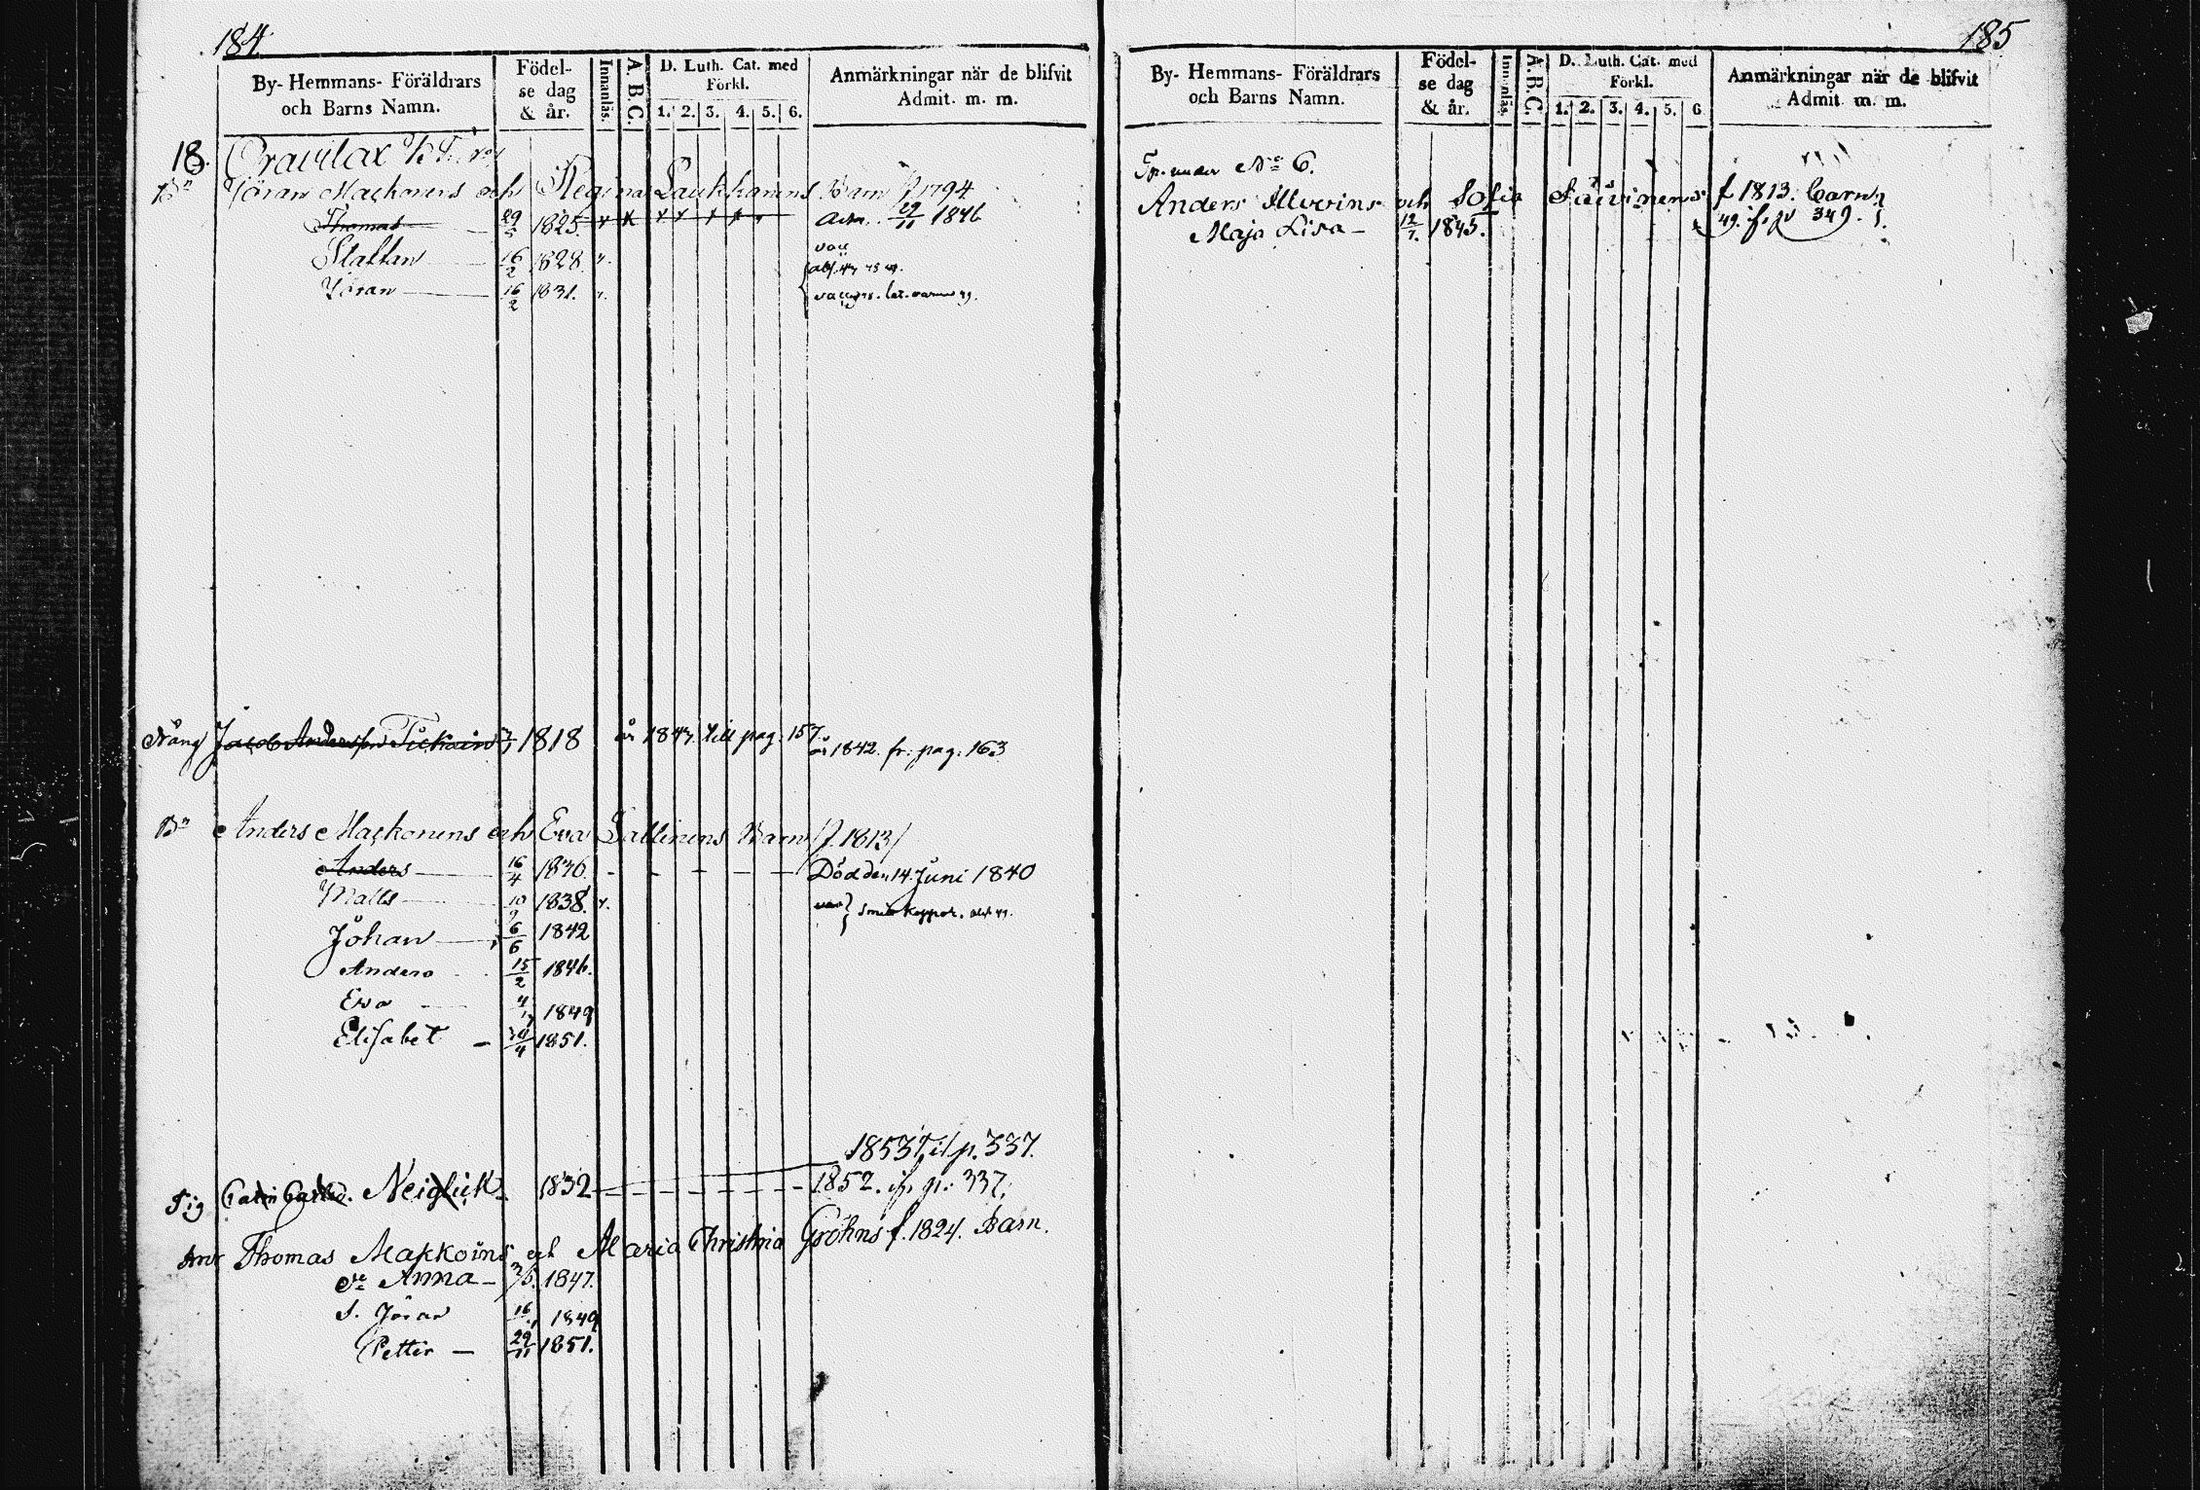 184.
By- Hemmans- Föräldrars och Barns Namn.
Födel- se dag & år.
Innanläs.
A. B. C.
D. Luth. Cat. med Förkl.
1. 2. 3. 4. 5. 6.
Anmärkningar när de blifvit Admit. m. m.
18. Pravilax
Bn Jöran Mackonens och Regina Laukkanens Barn f 1794
Thomas 29/5 1825 Adm. 29/11 1846
Staffan 16/2 1828 vac
Jöran 16/2 1831.
Mång Jacob Andersson Tickain 1818 år 1847. till pag. 157. år 1842. fr: pag: 163
Bn Anders Mackonens och Eva Lallinens Barn /f. 1813/
Anders 16/4 1836. Död den 14 Juni 1840
Matts 10/9 1838.
Johan 6/6 1842
Anders 15/2 1846.
Eva 1849
Elisabet 1851.
1853 Til p. 337.
Pig Neiglick 1832 1852. if. p: 337.
Thomas Makkoins och Maria Christina Gröhns f. 1824. Barn.
Anna 1847.
S. Jöran 16 1849
Petter 29/11 1851.
185
By- Hemmans- Föräldrars och Barns Namn.
Födel- se dag & år.
Innanläs.
A. B. C.
D. Luth. Cat. med Förkl.
1. 2. 3. 4. 5. 6
Anmärkningar när de blifvit Admit. m. m.
under No 6.
Anders och Sofia Päivinens f 1813. barn
Maja Lisa 12/7. 1845. 49. if. p 349.